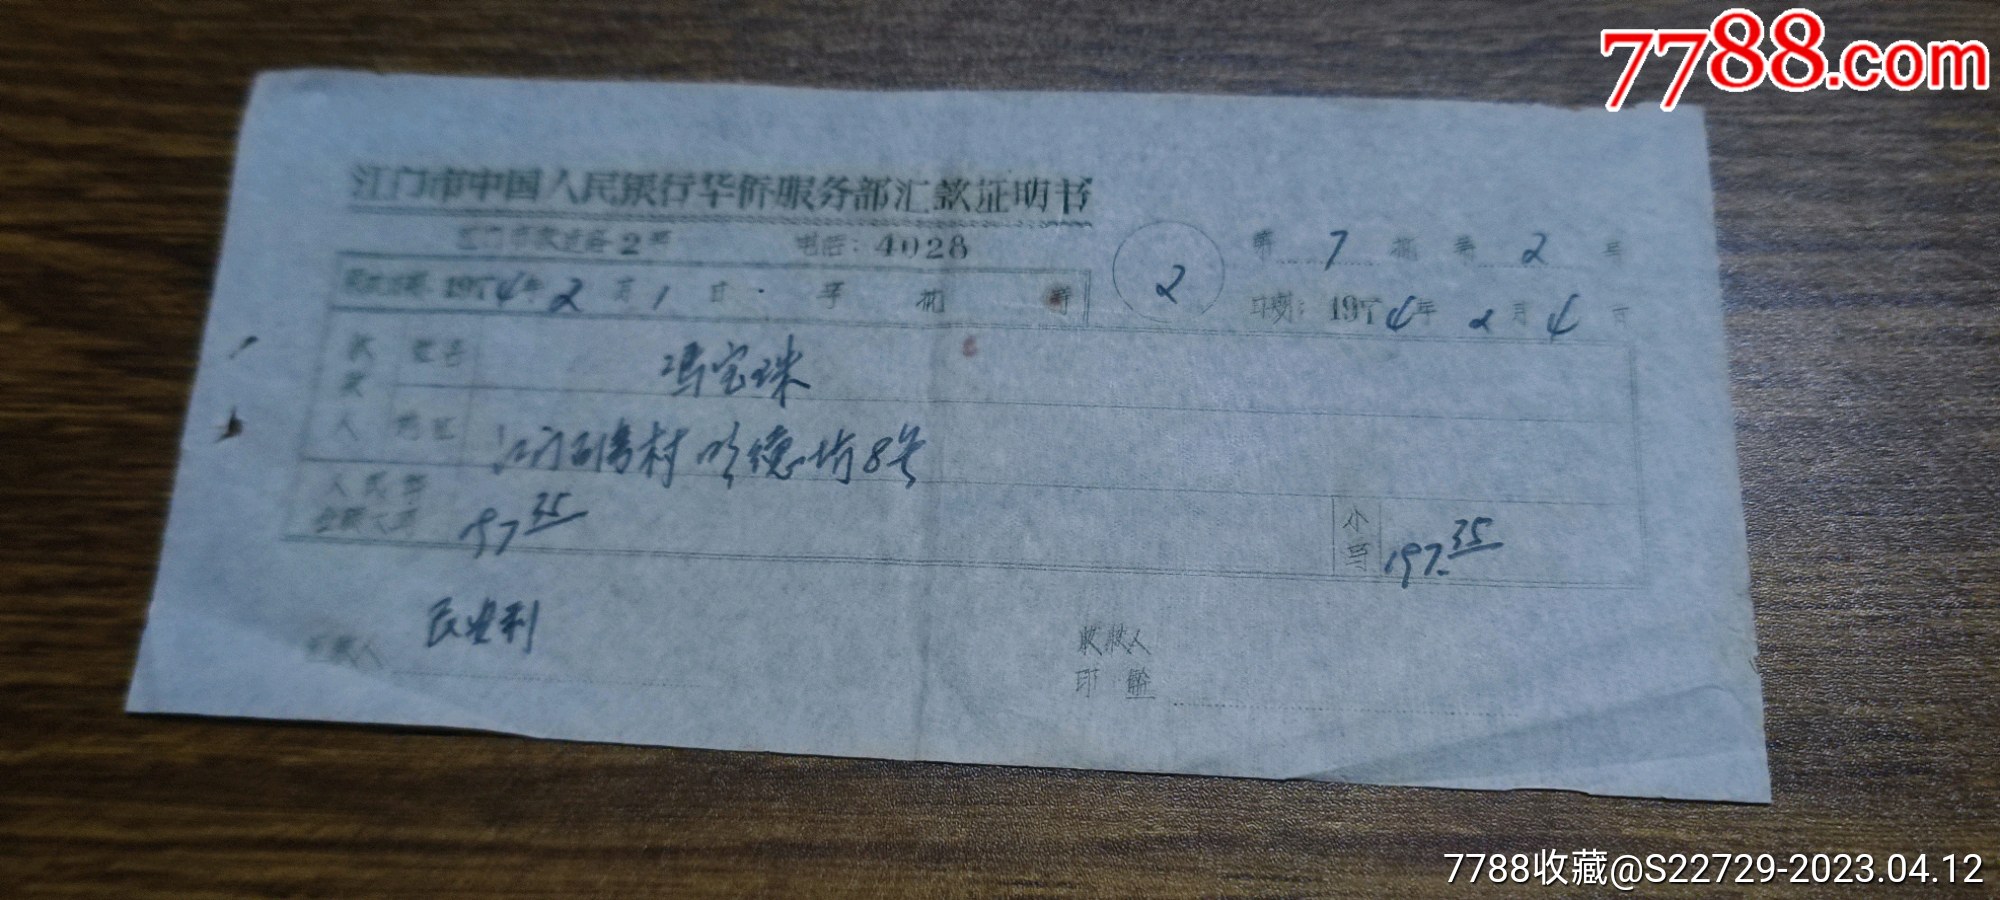 7788.com
江门市中国人民银行华侨服务部汇款证明书
2号 电话：4028
第 7 批 第 2 号
2
1974年 2 月 1 日 字 批 号
日期：1974年 2 月 4 日
收款人 姓名 冯宝珠
住址 江门 村 明德坊8号
人民币
金额大写 197 35
小写 197.35
汇款人
收款人
印鉴
7788收藏@S22729-2023.04.12